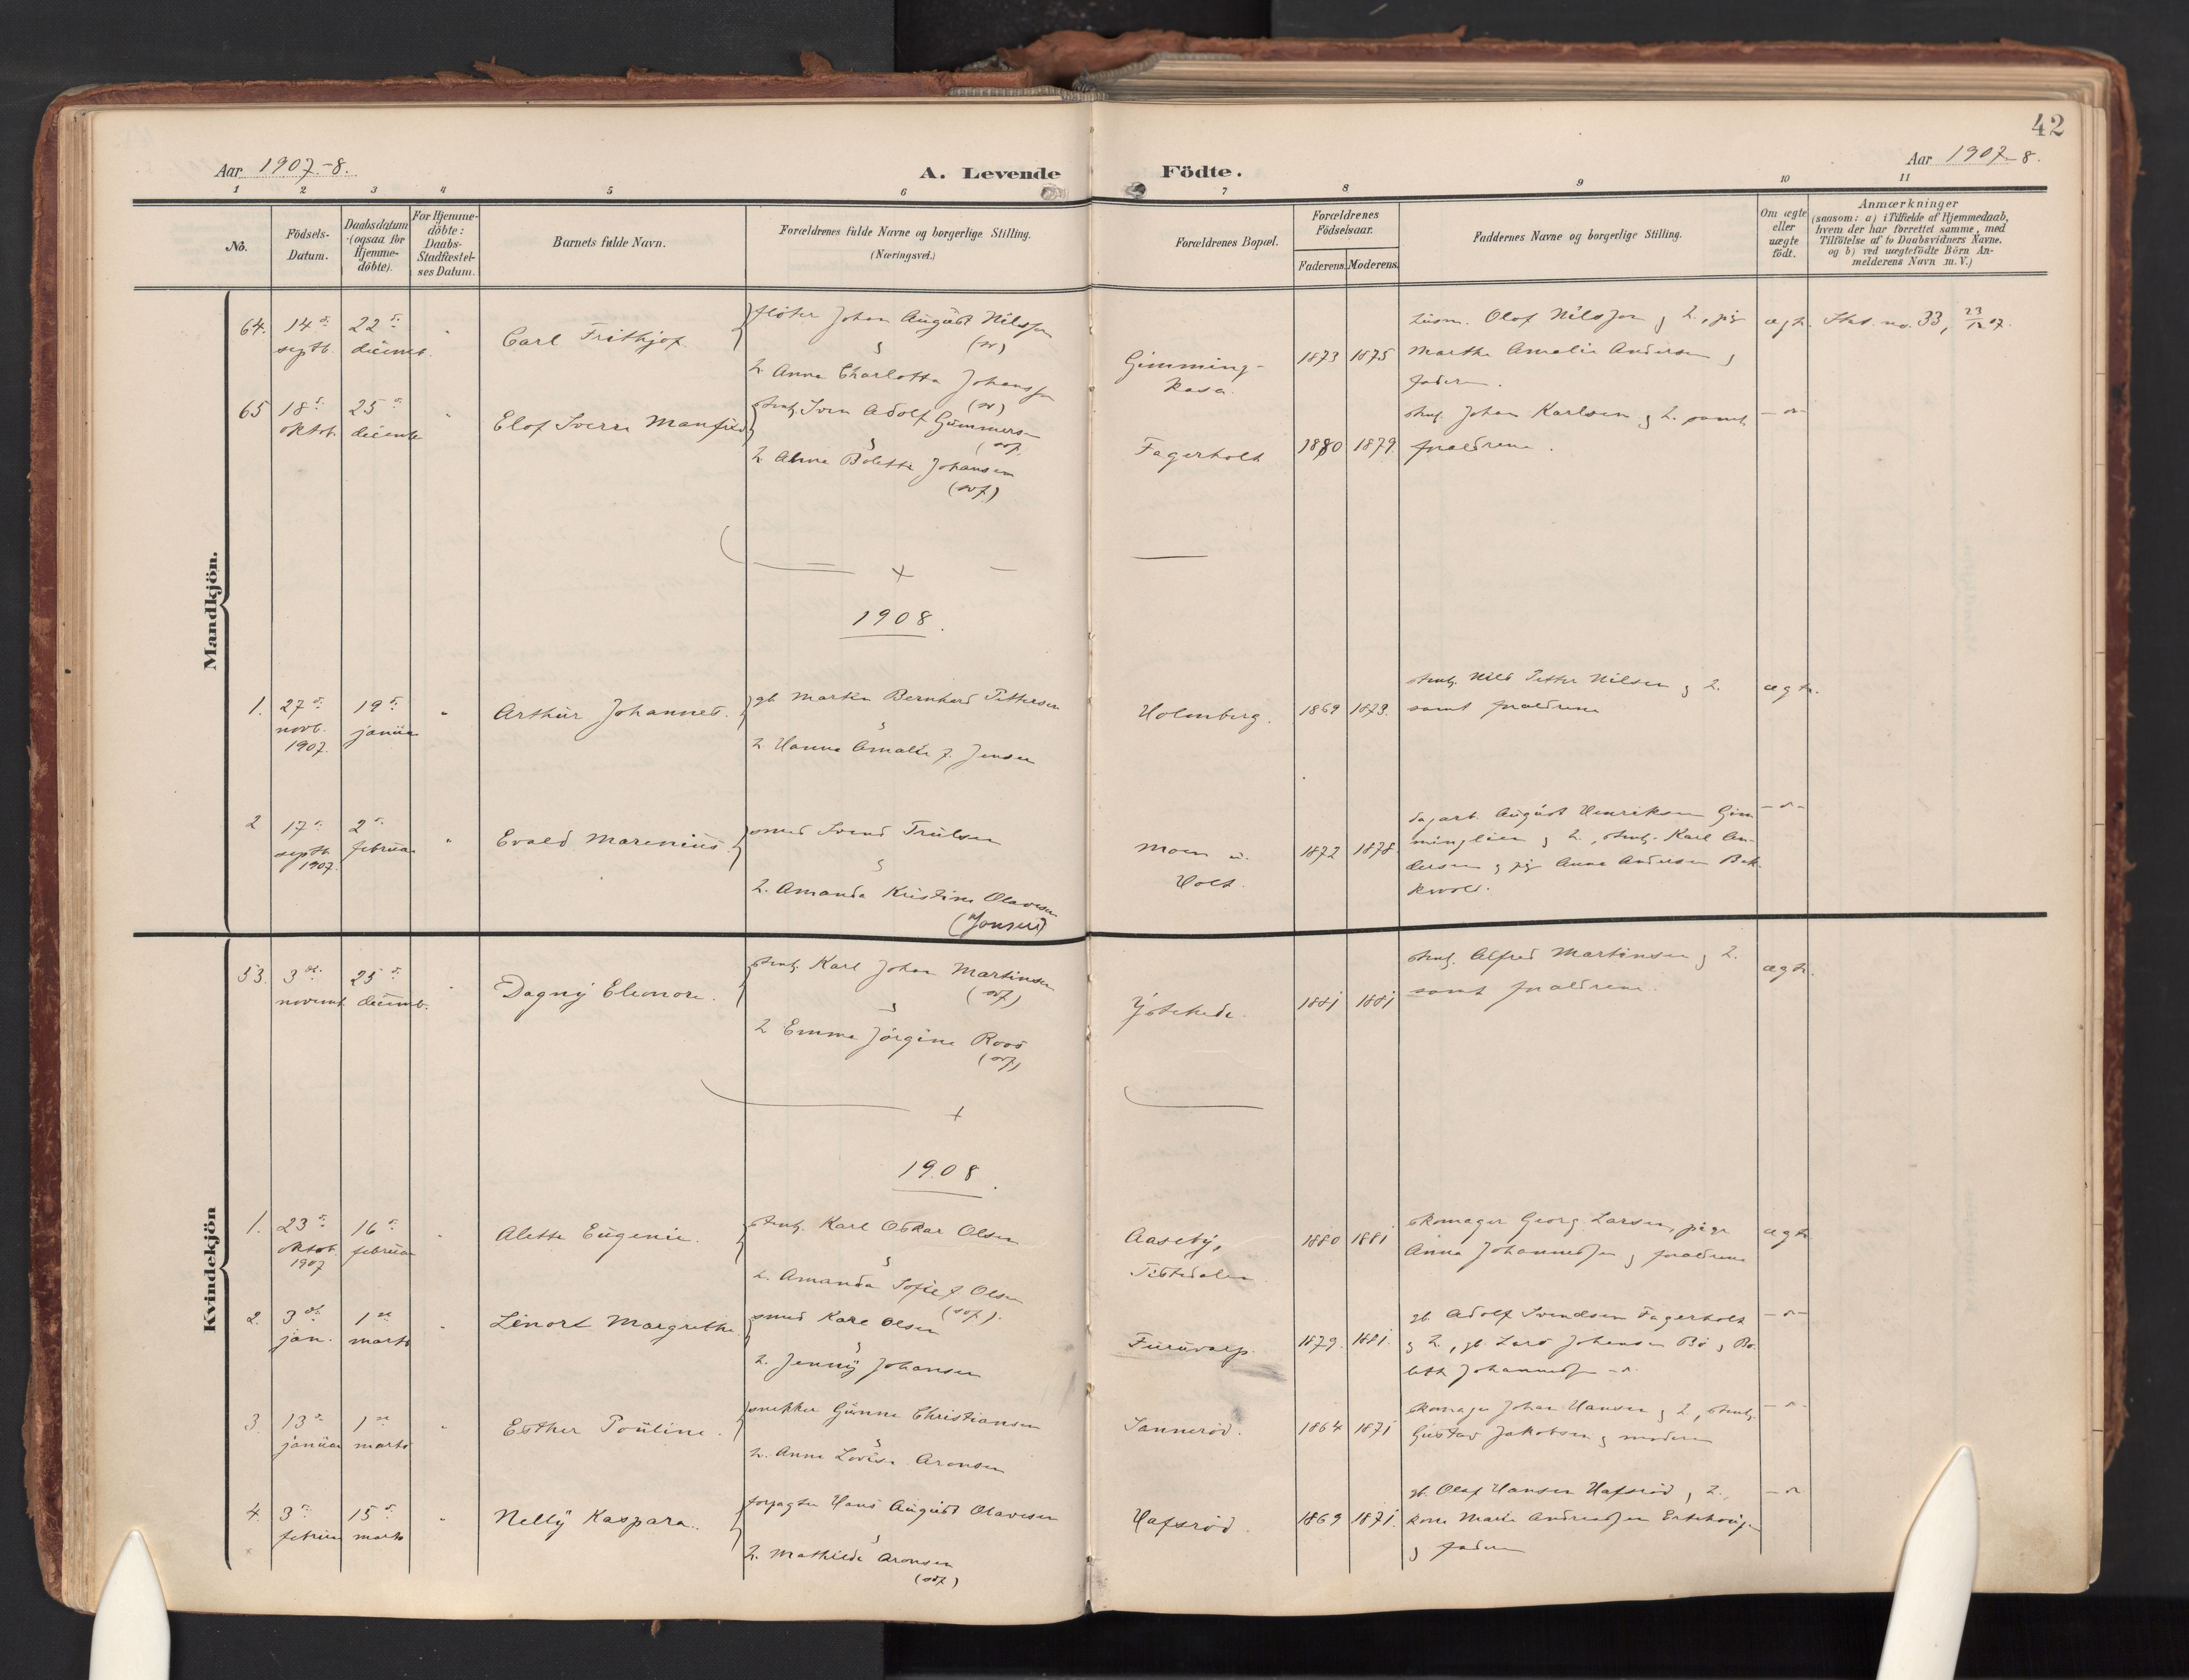 42
Aar 1907-8.
A. Levende Födte.
Aar 1907-8.
1 2 3 4 5 6 7 8 9 10 11
No.
Födsels-Datum.
Daabsdatum (ogsaa for Hjemme-döbte).
For Hjemme-döbte: Daabs-Stadfæstel-ses Datum.
Barnets fulde Navn.
Forældrenes fulde Navne og borgerlige Stilling.
(Næringsvei.)
Forældrenes Bopæl.
Forældrenes Födselsaar.
Faderens. Moderens.
Faddernes Navne og borgerlige Stilling.
Om ægte eller uægte födt.
Anmærkninger
(saasom: a) i Tilfælde af Hjemmedaab,
hvem der har forrettet samme, med
Tilföielse af to Daabsvidners Navne,
og b) ved uægtefödte Börn An-
melderens Navn m. V.)
Mandkjön.
64. 14de septb. 22de decemb. " Carl Frithjof
fløter Johan August Nilsson
(sv)
&
h. Anna Charlotta Johansson
(sv)
Gimming-
kasa.
1873 1875
husm. Olof Nilsson & h., pige
Marthe Amalie Andersen &
faderen.
ægte. Att. no. 33, 23/12 07.
65 18de oktob. 25de decemb " Elof Sverre Manfred
Sven Adolf Gummersen
&
h. Alma Bolette Johansen
Fagerholt
1880 1879.
Johan Karlsen & h. samt
forældrene.
-"-
1908.
1. 27de novb. 1907. 19de januar " Arthur Johannes.
gb Martin Bernhard Pettersen
&
h Hanna Amalie f. Jensen
Holmberg.
1869 1873.
Nils Petter Nilsen & h.
samt forældrene
ægte.
2 17de septb. 1907. 2den februar " Evald Marenius
smed Svend Trulsen
&
h. Amanda Kristine Olavesen
(Jonsen)
Moen u.
Holt.
1872 1878.
dagarb. August Henriksen Gim-
minglien & h., Karl An-
dersen & pige Anna Andersen Bak-
-"-
Kvindekjön
53. 3die novemb. 25de decemb. " Dagny Eleonore.
Karl Johan Martinsen
&
h Emma Jörgine Roos
Ystehede.
1881 1881
Alfred Martinsen & h.
samt forældrene.
ægte.
1908.
1. 23de oktob. 1907 16de februar " Alette Eugenie.
Karl Oskar Olsen
&
h. Amanda Sofie f. Olsen
Aaseby,
Tistedalen
1880 1881
skomager Georg Larsen, pige
Anna Johannessen & forældrene
ægte
2. 3die jan. 1ste marts " Linort Margrethe
smed Karl Olsen
&
h. Jenny Johansen
Furuvarp.
1879. 1881.
gb. Adolf Svendsen Fagerholt
& h., gb. Lars Johansen Bö & Bo-
lette Johannessen -"-
-"-
3. 13de januar 1ste marts " Esther Pouline.
snekker Gunne Christiansen
&
h. Anne Lovise Aronsen
Sannerød.
1864 1871
skomager Johan Hansen & h,
Gustav Jakobsen & moderen
-"-
4. 3die februar 15de marts " Nelly Kaspara.
forpagter Hans August Olavesen
&
h. Mathilde Aronsen
Hafsrød.
1869 1871.
gb. Olaf Hansen Hafsrød & h.,
kone Marie Andreassen
& faderen
-"-